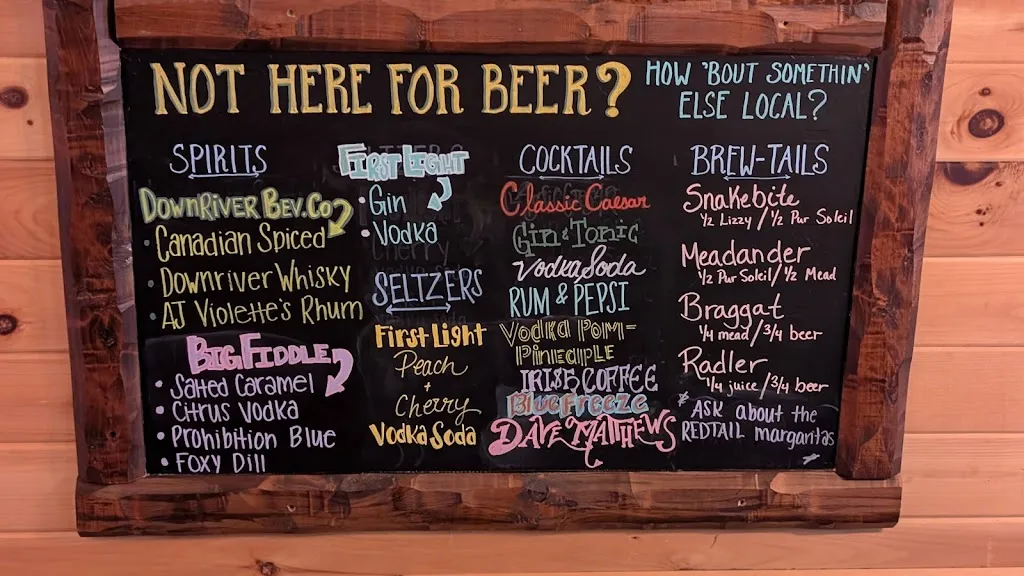 NOT HERE FOR BEER?
HOW 'BOUT SOMETHIN'
ELSE LOCAL?
SPIRITS
DOWNRIVER BEV.CO
· Canadian Spiced
· DOWNRIVER WHISKY
· AJ VIOLETTE'S RHUM
BIG FIDDLE
• SALTED CARAMEL
• CITRUS VODKA
• PROHIBITION BLUE
• FOXY DILL
FIRST LIGHT
• Gin
• Vodka
SELTZERS
First Light
Peach
+
Cherry
Vodka Soda
COCKTAILS
Classic Caesar
Gin & Tonic
Vodka Soda
RUM & PEPSI
VODKA POM-
PINEAPLLE
IRISH COFFEE
Blue Freeze
DAVE MATTHEWS
BREW-TAILS
Snakebite
1/2 Lizzy / 1/2 Pur Soleil
Meadander
1/2 Pur Soleil / 1/2 Mead
Braggat
1/4 mead / 3/4 beer
Radler
1/4 juice / 3/4 beer
* ASK about the
REDTAIL margaritas